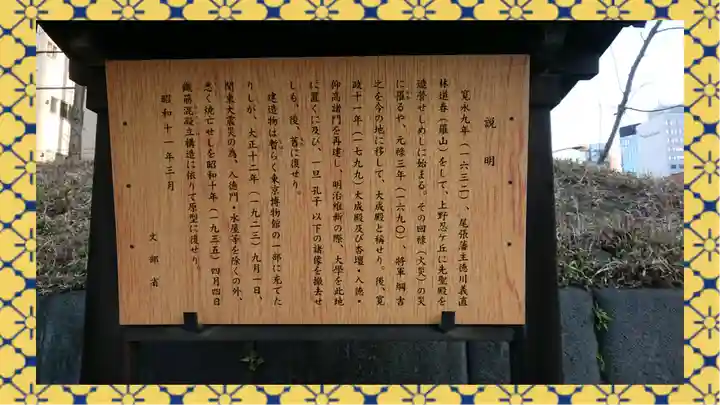 説明
寛永九年（一六三二）、尾張藩主徳川義直
林道春（羅山）をして、上野忍ケ丘に先聖殿を
造営せしめしに始まる。その回禄（火災）の災
に罹るや、元禄三年（一六九〇）、将軍綱吉
之を今の地に移して、大成殿と称せり。後、寛
政十一年（一七九九）大成殿及び杏壇・入徳・
仰高諸門を再建し、明治維新の際、大學を此地
に置くに及び、一旦孔子以下の諸像を撤去せ
しも、後、舊に復せり。
建造物は暫らく東京博物館の一部に充てた
りしが、大正十二年（一九二三）九月一日、
関東大震災の為、入徳門・水屋等を除くの外、
悉く焼亡せしを昭和十年（一九三五）四月四日
鐵筋混凝土構造に依りて原型に復せり。
昭和十一年三月
文部省